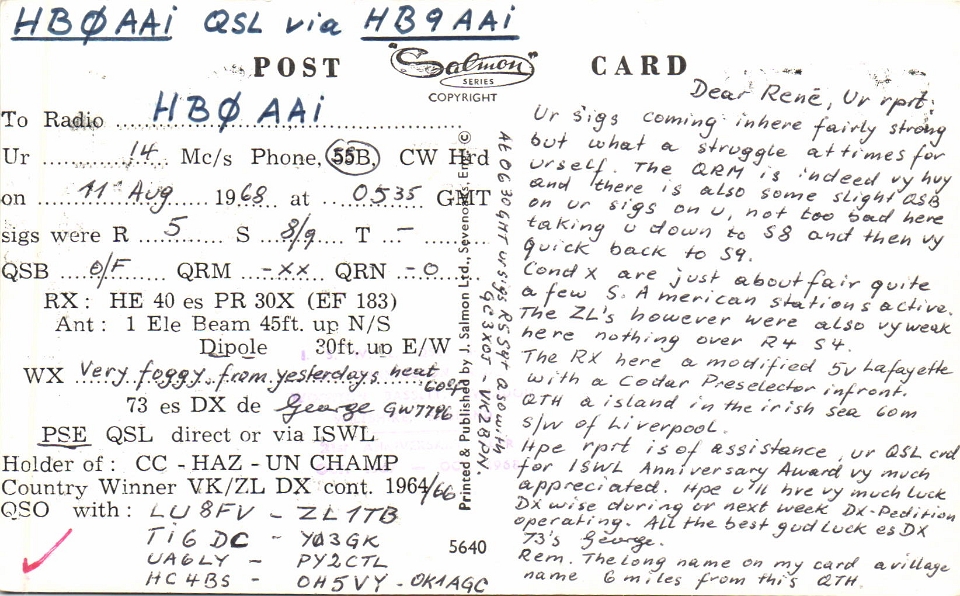 HBØAAi QSL via HB9AAi
POST "Salmon" SERIES CARD
COPYRIGHT
To Radio HBØ AAi
Ur 14 Mc/s Phone, SSB, CW Hrd
on 11th Aug 1968 at 0535 GMT
sigs were R 5 S 8/9 T -
QSB o/F QRM -xx QRN -o
RX: HE 40 es PR 30X (EF 183)
Ant: 1 Ele Beam 45ft. up N/S
Dipole 30ft. up E/W
WX Very foggy from yesterdays heat 60°F
73 es DX de George GW7796
PSE QSL direct or via ISWL
Holder of: CC - HAZ - UN CHAMP
Country Winner VK/ZL DX cont. 1964/66
QSO with: LU8FV - ZL1TB
Ti6DC - YO3GK
UA6LY - PY2CTL
HC4BS - OH5VY - OK1AGC
Printed & Published by J. Salmon Ltd., Sevenoaks, Eng. ©
At 0630 GMT ur sigs R5 S4 QSO with
GC3XOT - VK2BPN.
5640
Dear René, Ur rprt.
Ur sigs coming inhere fairly strong
but what a struggle at times for
urself. The QRM is indeed vy hvy
and there is also some slight QSB
on ur sigs on u, not too bad here
taking u down to S8 and then vy
quick back to S9.
Cond X are just about fair quite
a few S. American stations active.
The ZL's however were also vy weak
here nothing over R4 S4.
The RX here a modified 5v Lafayette
with a Codar Preselector infront.
QTH a island in the irish sea 60m
s/w of Liverpool.
Hpe rprt is of assistance, ur QSL crd
for ISWL Anniversary Award vy much
appreciated. Hpe u'll hve vy much luck
DX wise during ur next week DX-Pedition
operating. All the best gud luck es DX
73's George.
Rem. The long name on my card a village
name 6 miles from this QTH.